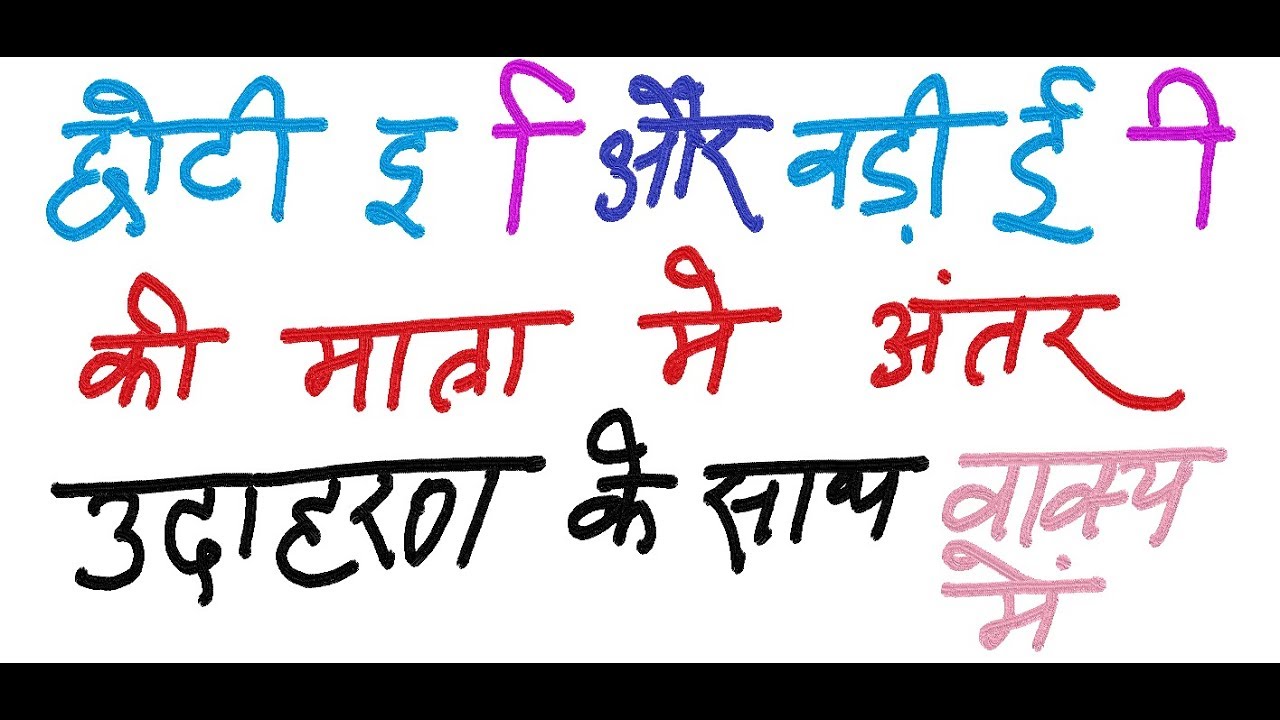 छोटी इ ि और बड़ी ई ी
की मात्रा मे अंतर
उदाहरण के साथ वाक्य
में